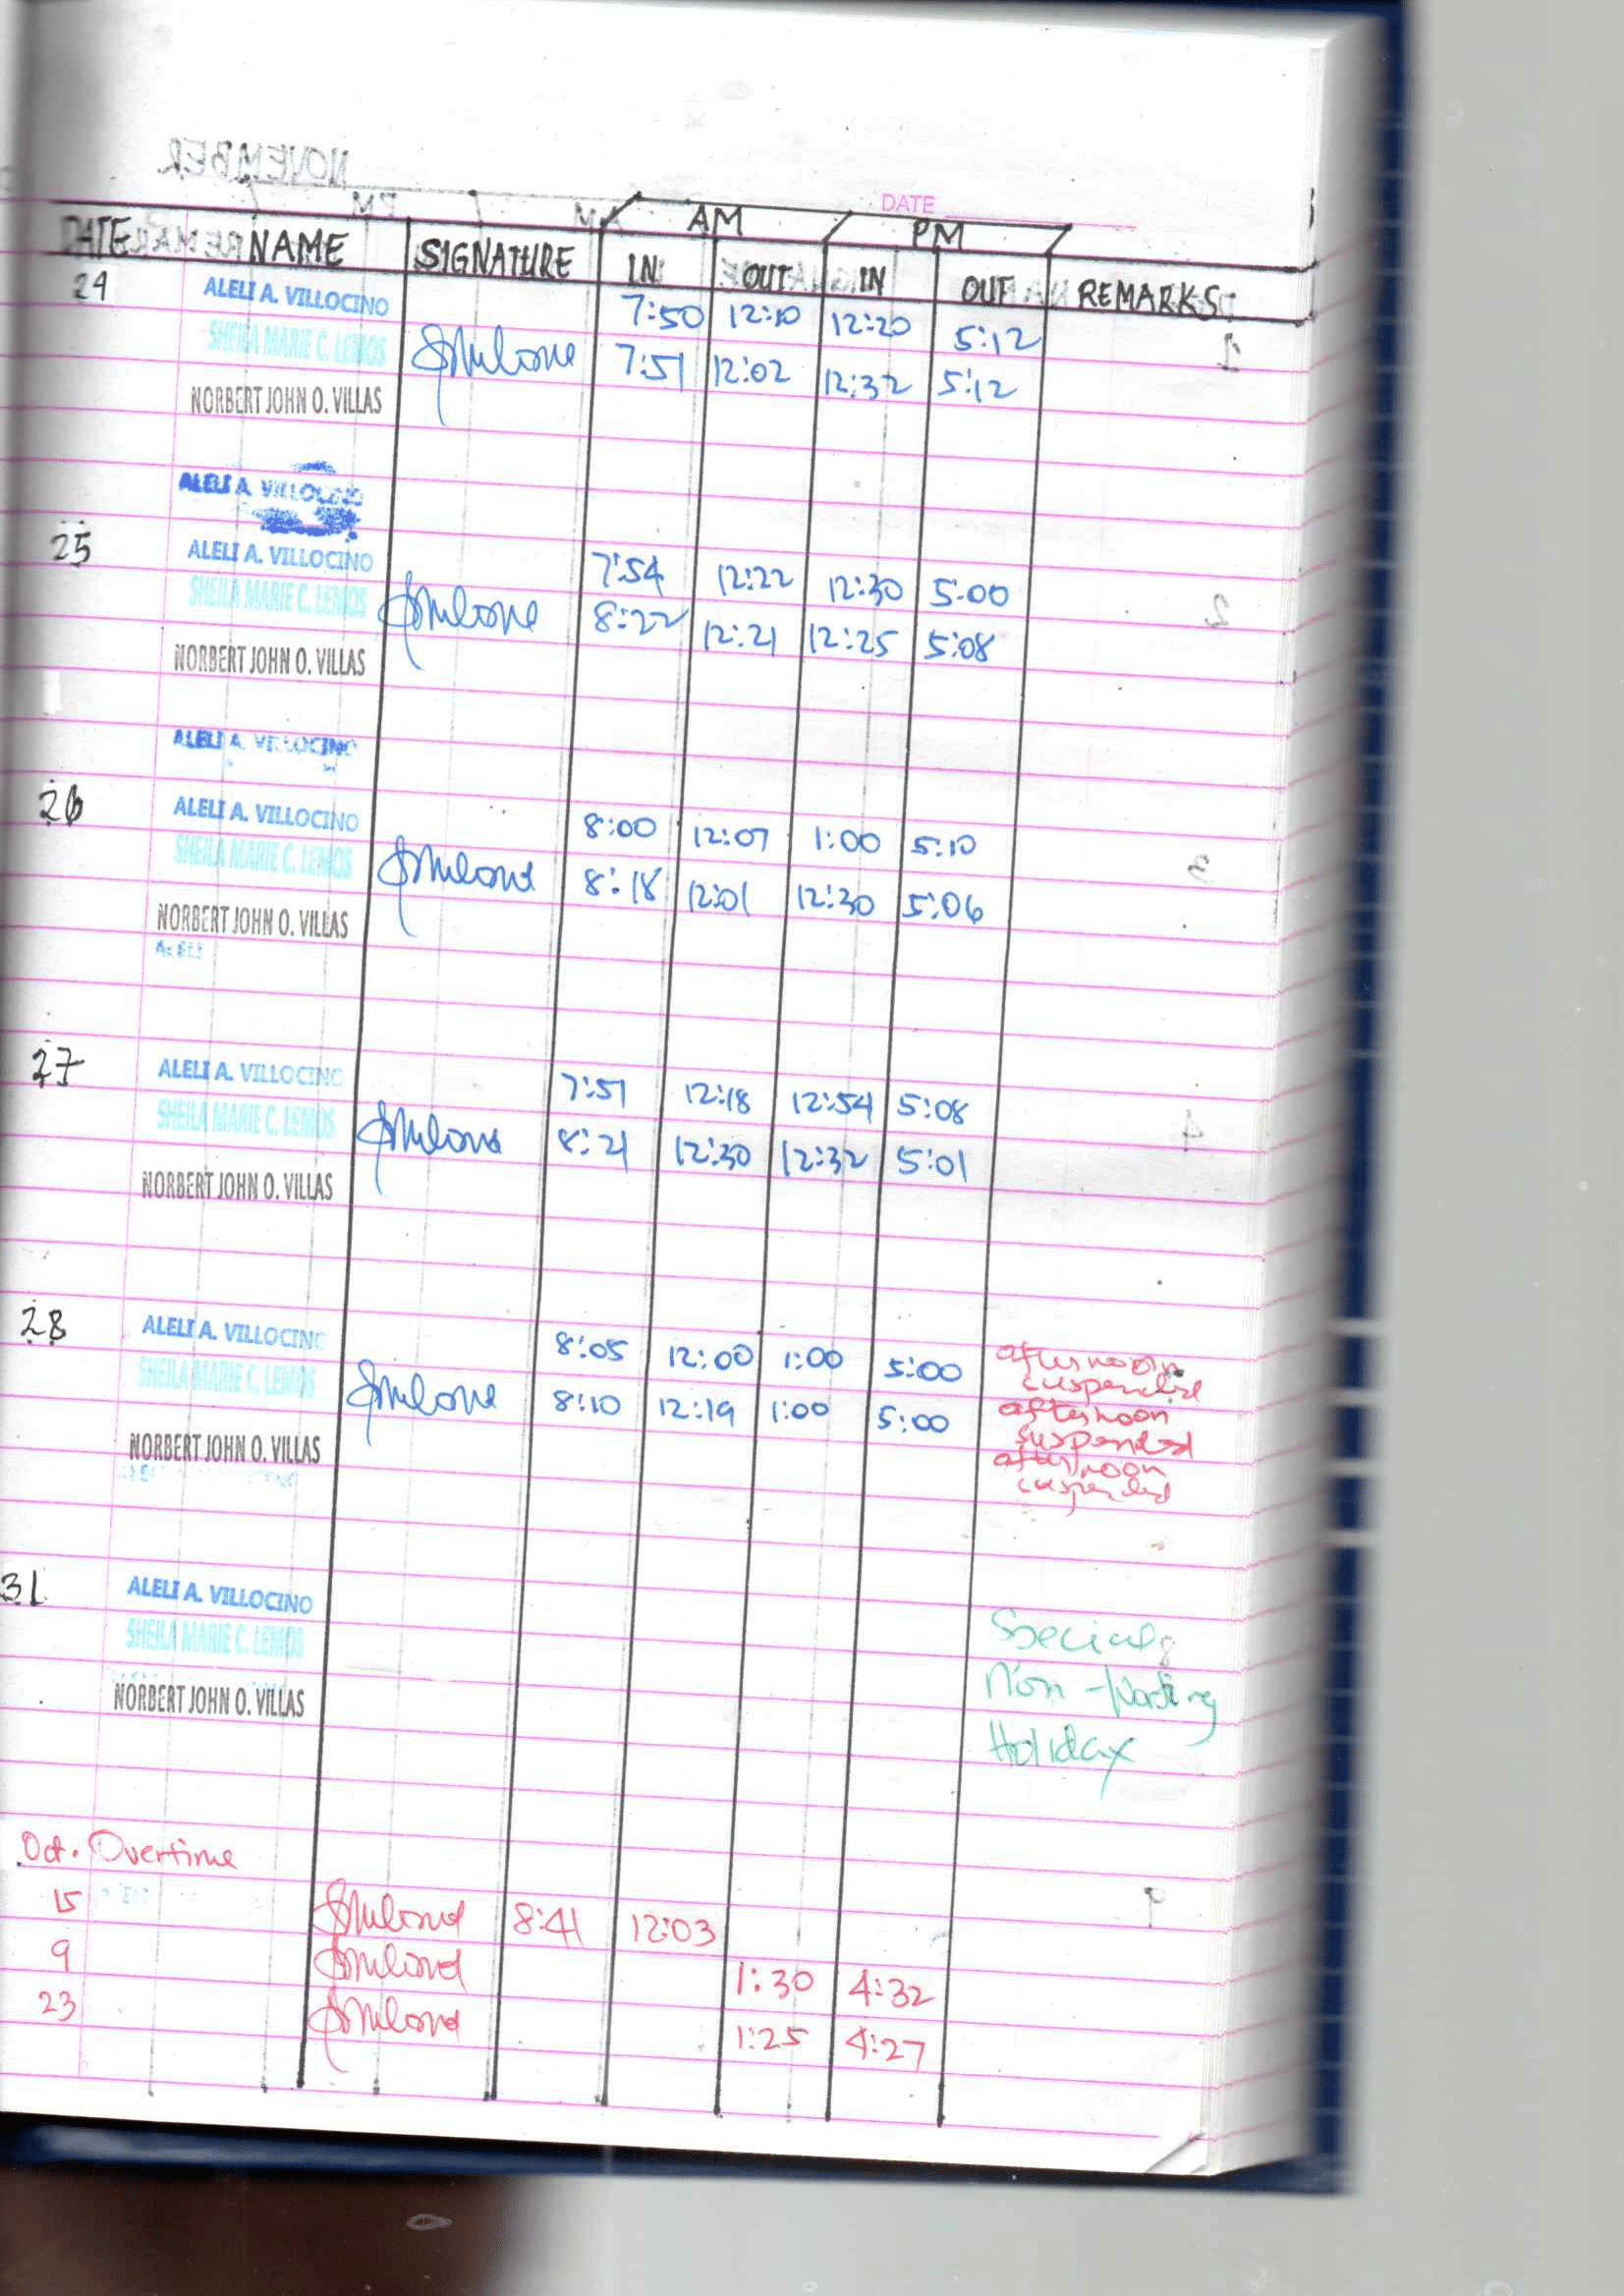 NOVEMBER
DATE
AM PM
DATE NAME SIGNATURE IN OUT IN OUT REMARKS
24 ALELI A. VILLOCINO 7:50 12:10 12:20 5:12
SHEILA MARIE C. LEMOS 7:51 12:02 12:32 5:12
NORBERT JOHN O. VILLAS
ALELI A. VILLOCINO
25 ALELI A. VILLOCINO 7:54 12:22 12:30 5:00
SHEILA MARIE C. LEMOS 8:22 12:21 12:25 5:08
NORBERT JOHN O. VILLAS
ALELI A. VILLOCINO
26 ALELI A. VILLOCINO 8:00 12:07 1:00 5:10
SHEILA MARIE C. LEMOS 8:18 12:01 12:30 5:06
NORBERT JOHN O. VILLAS
27 ALELI A. VILLOCINO 7:51 12:18 12:54 5:08
SHEILA MARIE C. LEMOS 8:21 12:30 12:32 5:01
NORBERT JOHN O. VILLAS
28 ALELI A. VILLOCINO 8:05 12:00 1:00 5:00 afternoon
suspended
SHEILA MARIE C. LEMOS 8:10 12:19 1:00 5:00 afternoon
suspended
NORBERT JOHN O. VILLAS afternoon
suspended
31 ALELI A. VILLOCINO
SHEILA MARIE C. LEMOS Special
NORBERT JOHN O. VILLAS Non-Working
Holiday
Oct. Overtime
15 8:41 12:03
9 1:30 4:32
23 1:25 4:27